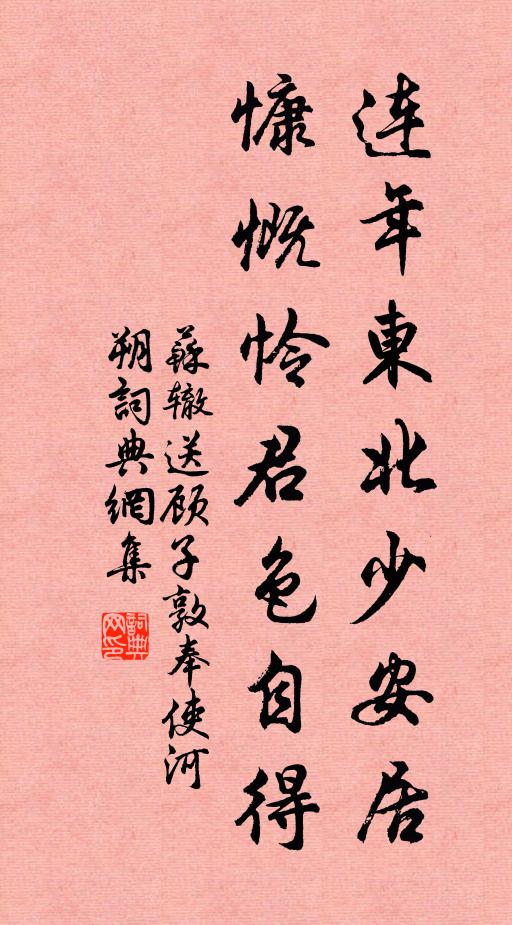 連年東北少安居
慷慨怜君色自得
蘇辙送顾子敦奉使河
朔詞典網集
詞典网印